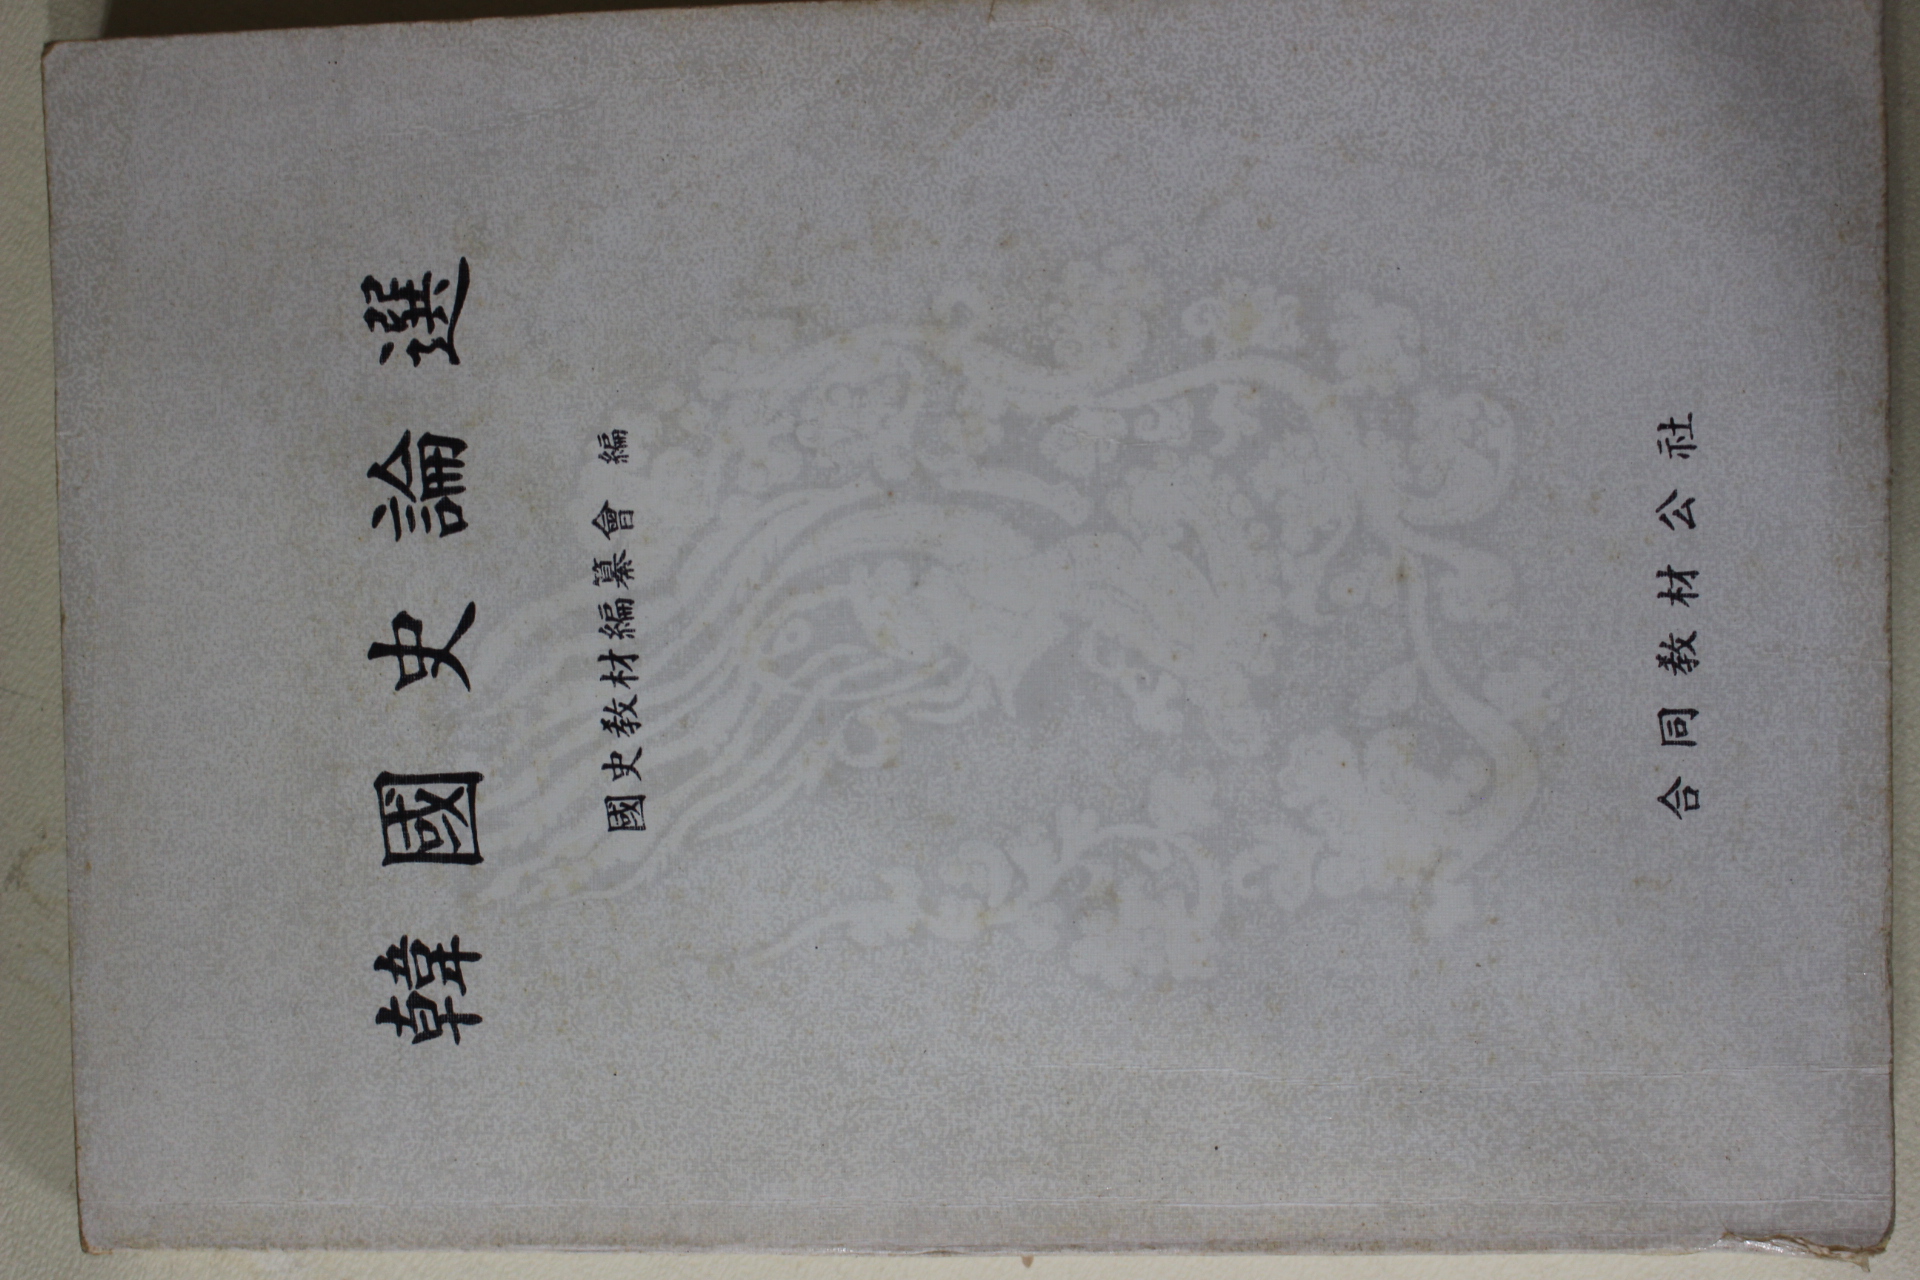 韓國史論選
國史敎材編纂會 編
合同敎材公社